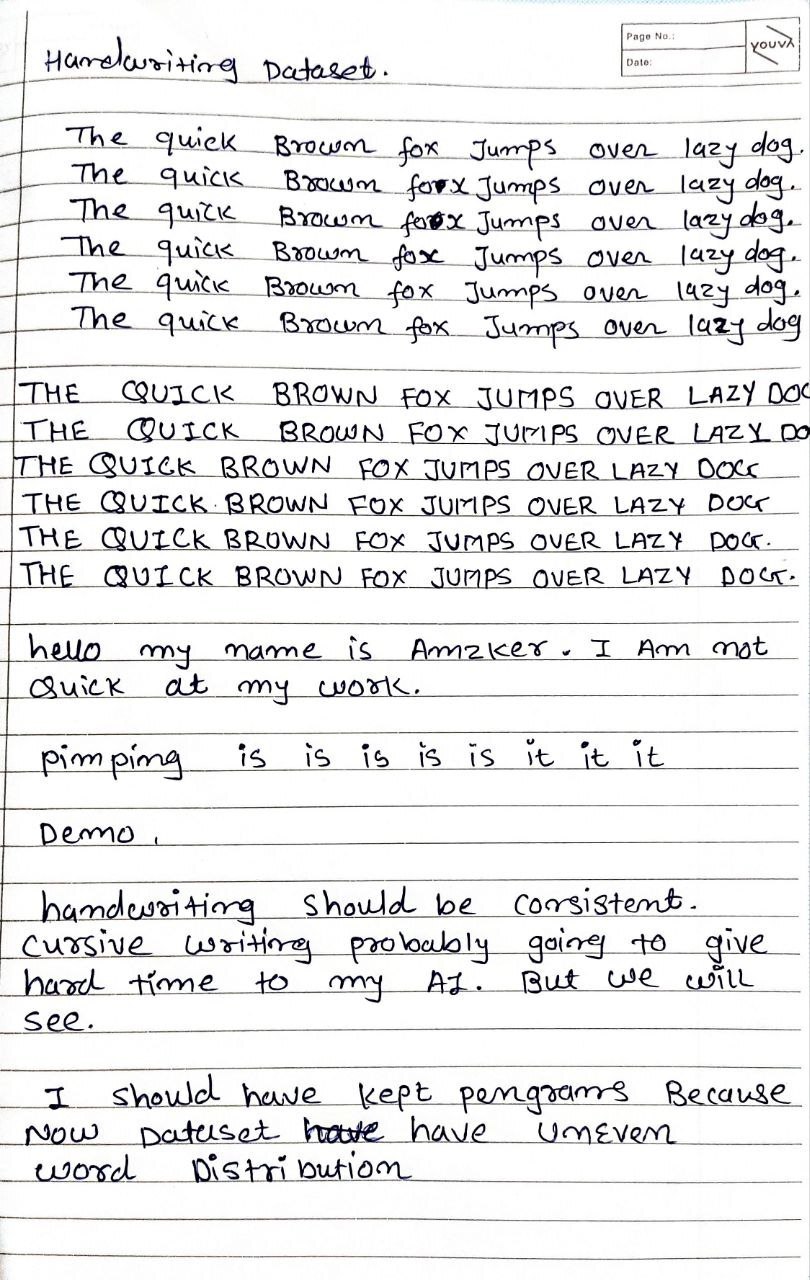 Page No.:
Date:
YOUVA
Handwriting Dataset.
The quick Brown fox Jumps over lazy dog.
The quick Brown fox Jumps over lazy dog.
The quick Brown fox Jumps over lazy dog.
The quick Brown fox Jumps over lazy dog.
The quick Brown fox Jumps over lazy dog.
The quick Brown fox Jumps over lazy dog
THE QUICK BROWN FOX JUMPS OVER LAZY DOG
THE QUICK BROWN FOX JUMPS OVER LAZY DO
THE QUICK BROWN FOX JUMPS OVER LAZY DOG
THE QUICK BROWN FOX JUMPS OVER LAZY DOG
THE QUICK BROWN FOX JUMPS OVER LAZY DOG.
THE QUICK BROWN FOX JUMPS OVER LAZY DOG.
hello my name is Amzker. I Am not
Quick at my work.
pimping is is is is is it it it
Demo.
handwriting should be consistent.
cursive writing probably going to give
hard time to my AI. But we will
see.
I should have kept pengrams Because
Now Dataset have have unEven
word Distribution